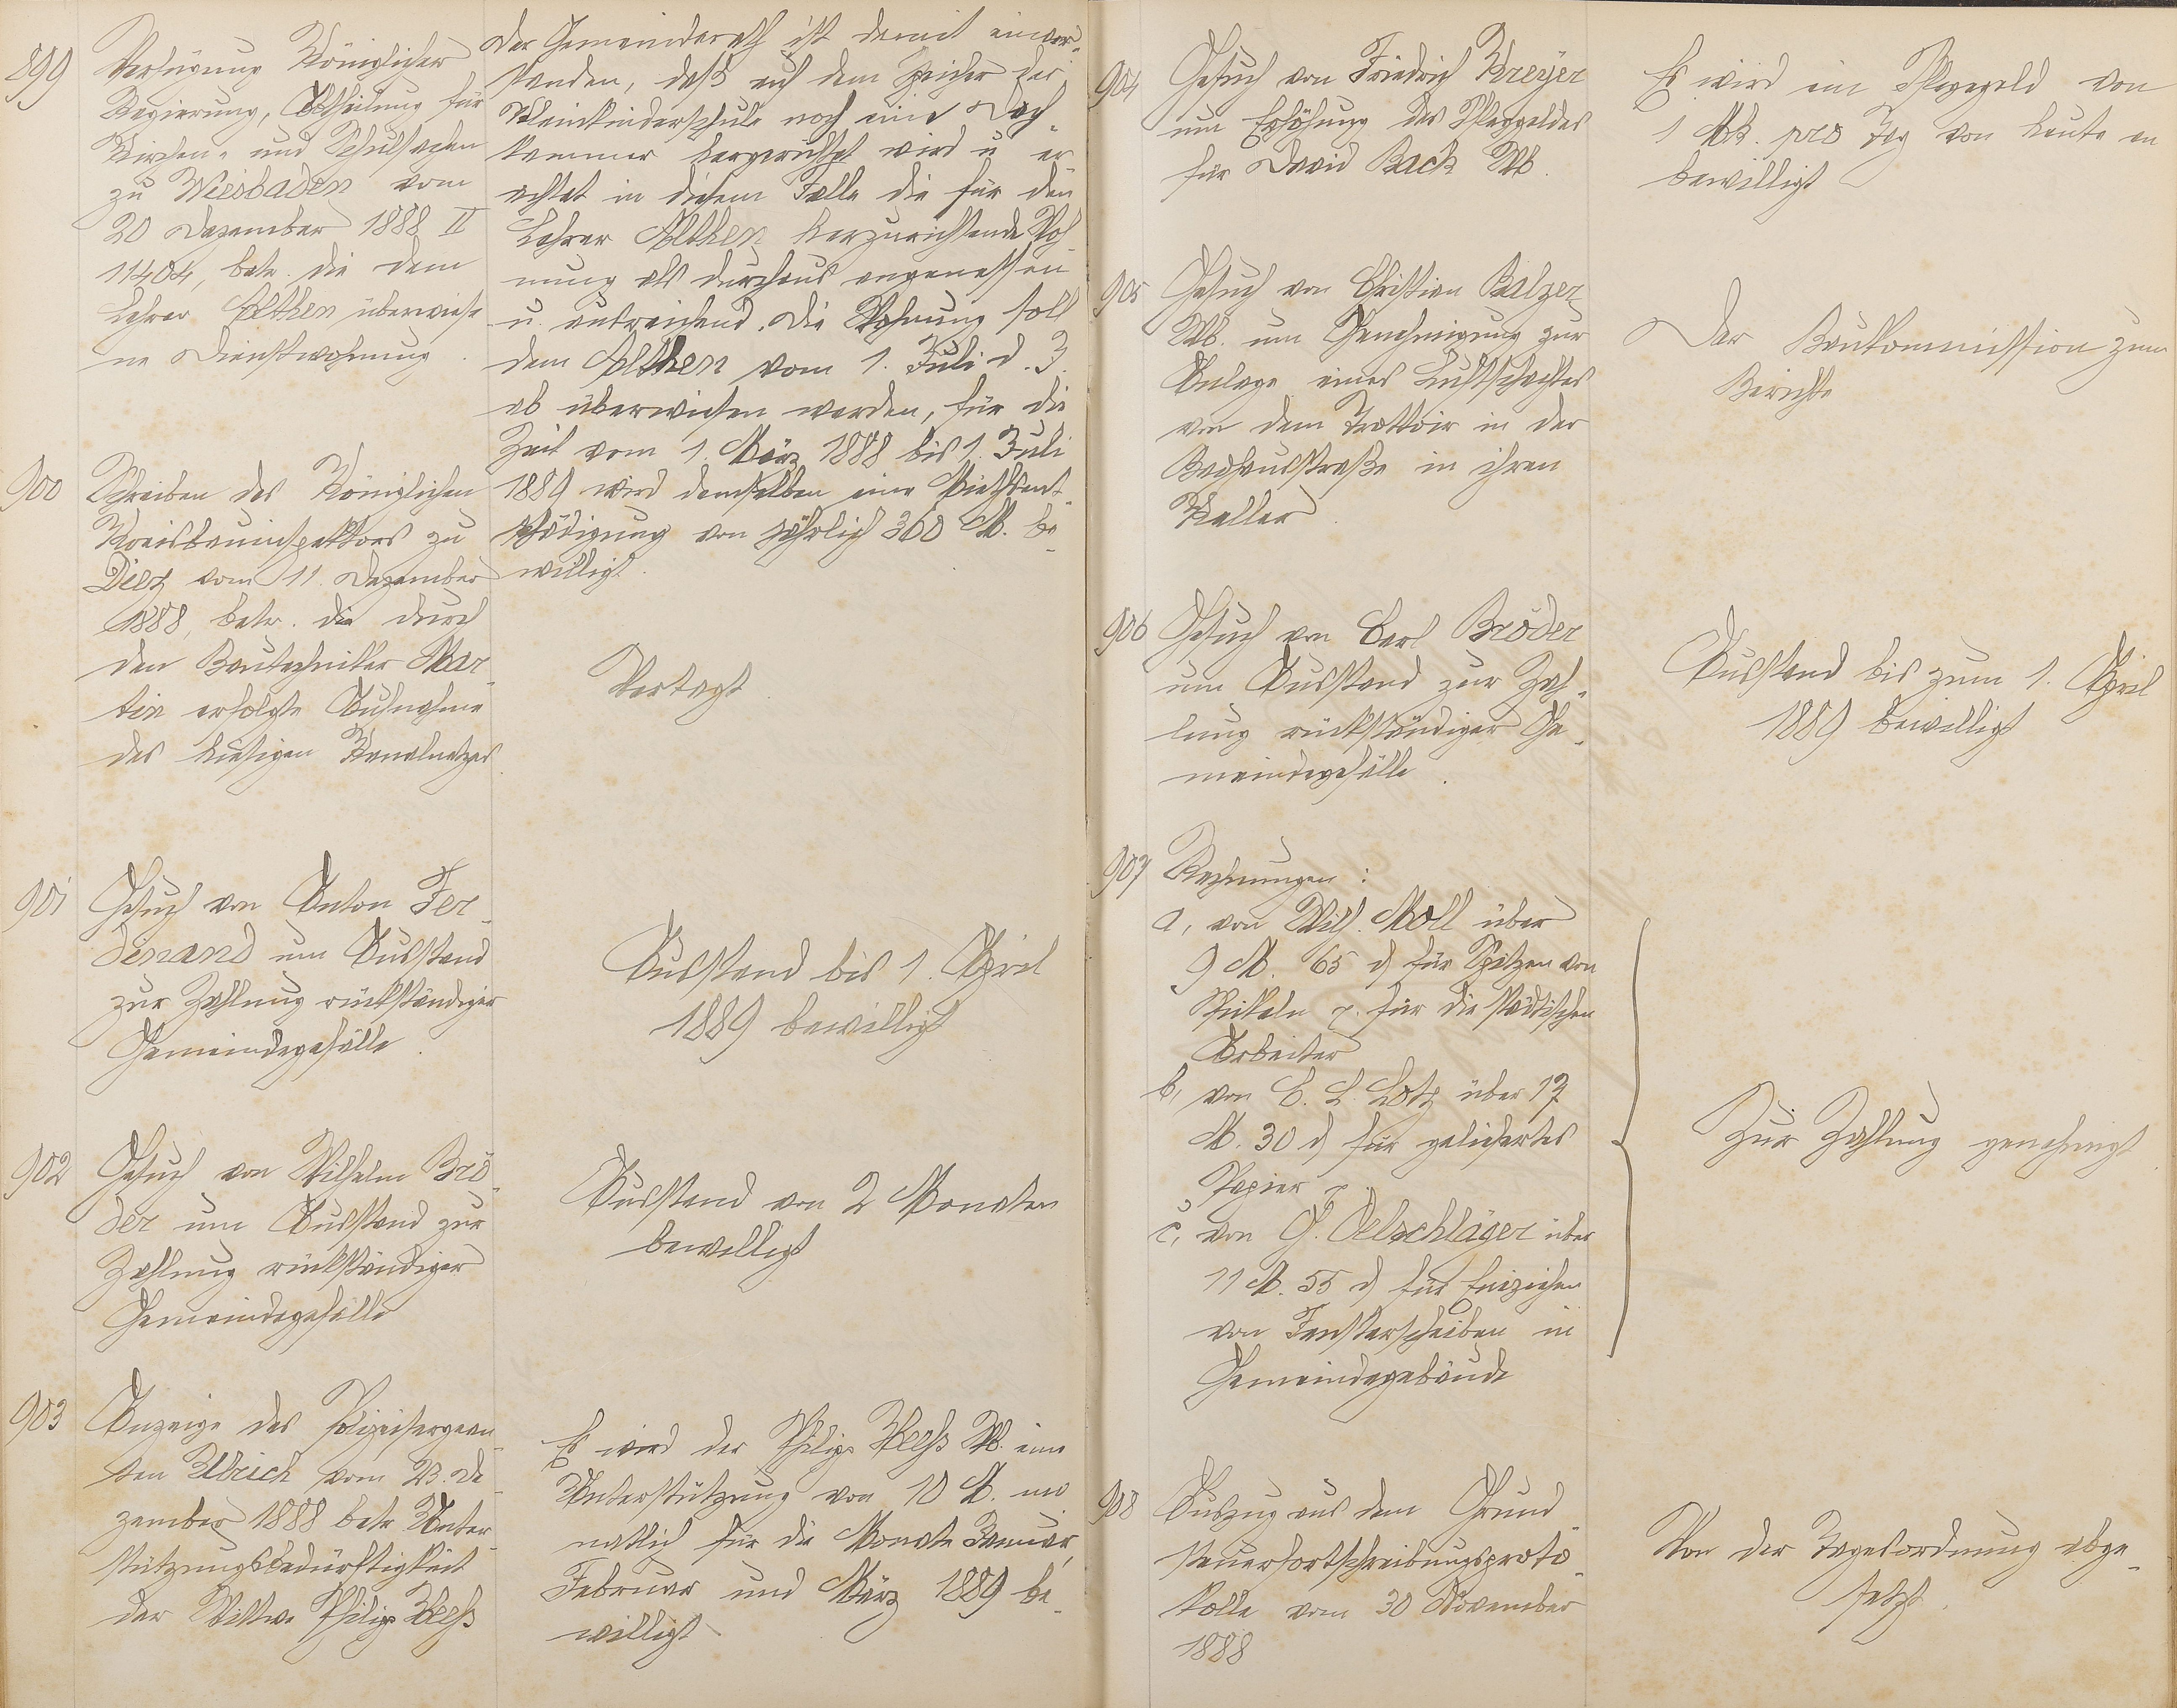 899
Verfügung Königlicher
Regierung, Abtheilung für
Kirchen- und Schulsachen
zu Wiesbaden vom
20 Dezember 1888 II
11404, betr. die dem
Lehrer Althen überwiese
ne Dienstwohnung.
Der Gemeinderath ist damit einver-
standen, daß auf dem Speicher der
Kleinkinderschule noch eine Dach-
kammer hergerichtet wird u er-
achtet in diesem Falle die für den
Lehrer Althen herzurichtende Woh-
nung als durchaus angemessen
u. ausreichend. Die Wohnung soll
dem Althen vom 1. Juli d. J.
ab überwiesen werden, für die
Zeit vom 1. März 1888 bis 1. Juli
1889 wird demselben eine Miethsent-
schädigung von jährlich 360 M. be-
willigt.
900
Schreiben des Königlichen
Kreisbauinspektors zu
Diez vom 11. Dezember
1888, betr. die durch
den Bautechniker Mar-
tin erfolgte Aufnahme
des hiesigen Kanalnetzes
Vertagt
901
Gesuch von Anton Fer-
dinand um Ausstand
zur Zahlung rückständiger
Gemeindegefälle.
Ausstand bis 1. April
1889 bewilligt
902
Gesuch von Wilhelm Brö-
der um Ausstand zur
Zahlung rückständiger
Gemeindegefälle
Ausstand von 2 Monaten
bewilligt
903
Anzeige des Polizeisergean-
ten Ulrich vom 23. De-
zember 1888 betr Unter-
stützungsbedürftigkeit
der Wittwe Philipp
Es wird der Philipp Wb. eine
Unterstützung von 10 M. mo-
natlich für die Monate Januar,
Februar und März 1889 be-
willigt
904
Gesuch von Friedrich Breyer
um Erhöhung des Pflegegeldes
für David Back Wb.
Es wird ein Pflegegeld von
1 Mk. pro Tag von heute an
bewilligt
905
Gesuch von Christian Balzer
Wb. um Genehmigung zur
Anlage eines Luftschachtes
von dem Trottoir in der
Badhausstraße in ihren
Keller.
Der Baukommission zum
Berichte
906
Gesuch von Carl Bröder
um Ausstand zur Zah-
lung rückständiger Ge-
meindegefälle.
Ausstand bis zum 1. April
1889 bewilligt
907
Rechnungen:
a, von Wilh. Moll über
9 M. 65 ₰ für Spitzen von
Pickeln p. für die städtischen
Arbeiter
b, von C. L. Lotz über 17
M. 30 ₰ für geliefertes
Papier p.
c, von G. Oelschläger über
11 M. 55 ₰ für Einziehen
von Fensterscheiben in
Gemeindegebäude
Zur Zahlung genehmigt
908
Auszug aus dem Grund-
steuerfortschreibungsproto-
kolle vom 30 November
1888
Von der Tagesordnung abge-
setzt.